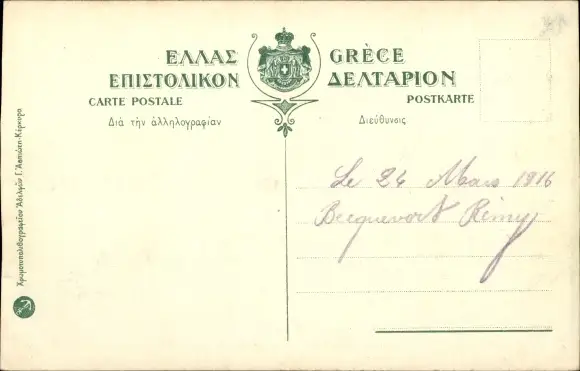 ΕΛΛΑΣ GRÈCE
ΕΠΙΣΤΟΛΙΚΟΝ ΔΕΛΤΑΡΙΟΝ
CARTE POSTALE POSTKARTE
Διὰ τὴν ἀλληλογραφίαν Διεύθυνσις
Le 24 Mars 1916
Becquevort Rémy
Χρωμοτυπολιθογραφεῖον Ἀδελφῶν Γ. Ἀσπιώτη-Κέρκυρα